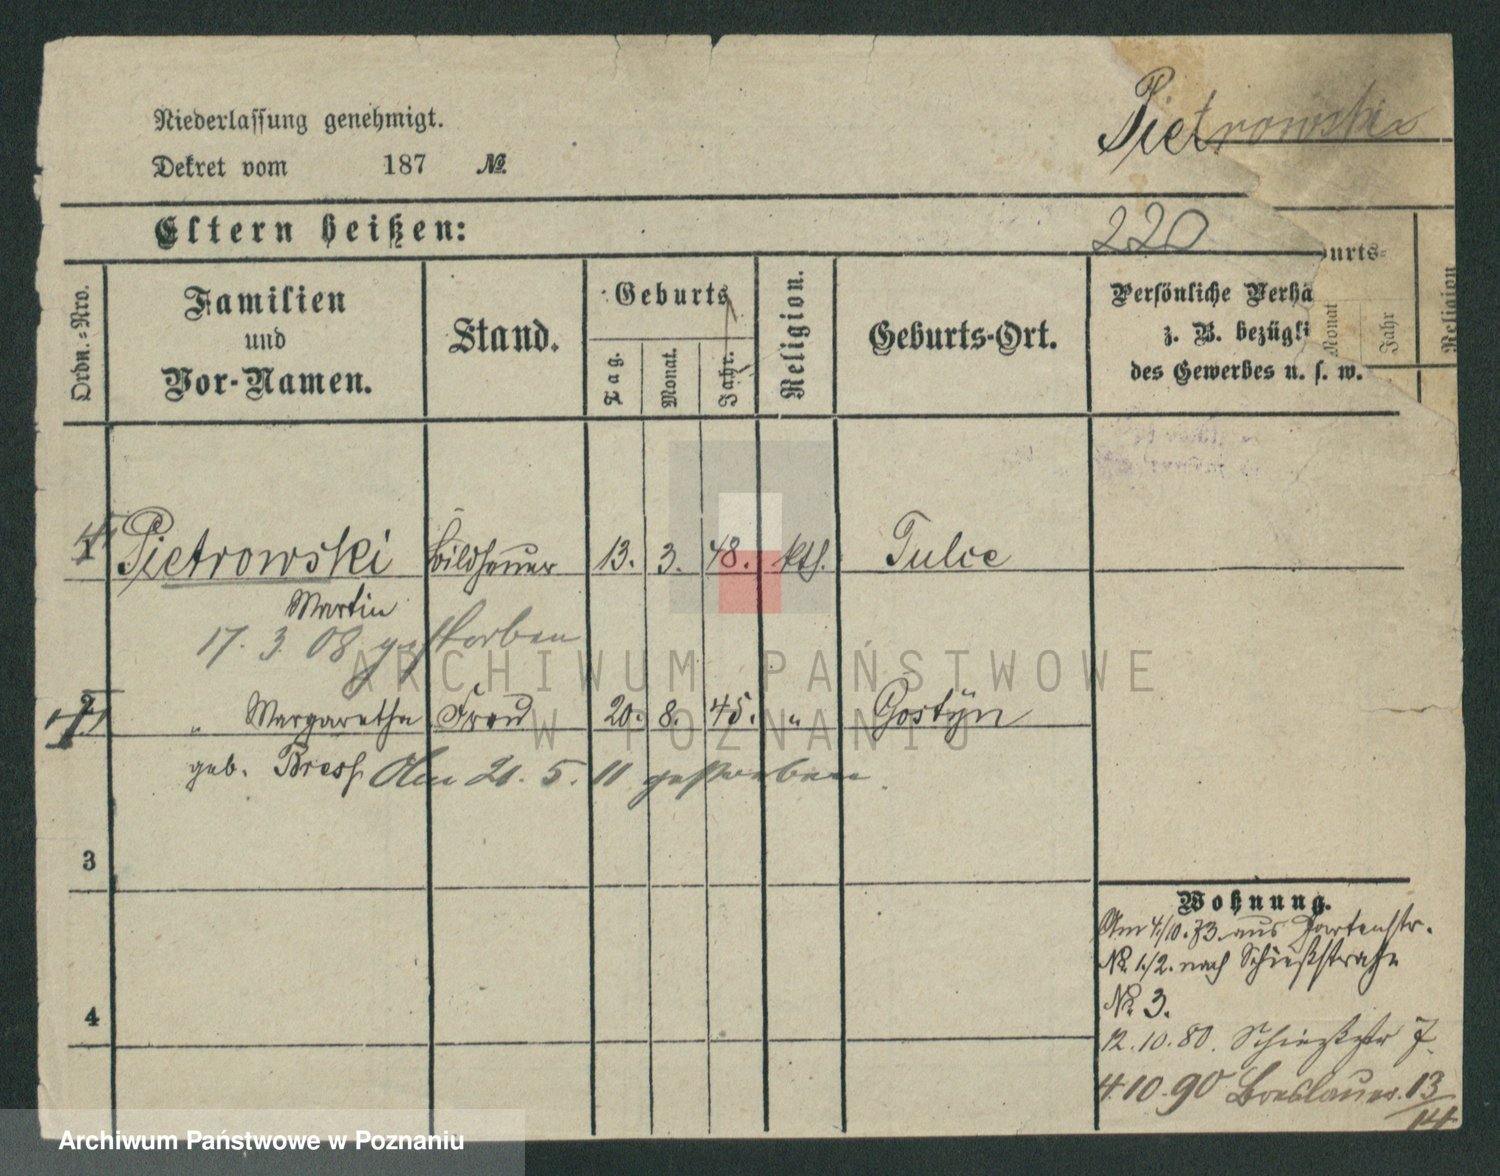 Niederlassung genehmigt.
Dekret vom 187 №
Pietrowski
Eltern heißen:
220
urts-
Ordn.-Nro.
Familien
und
Vor-Namen.
Stand.
Geburts
Tag.
Monat.
Jahr.
Religion.
Geburts-Ort.
Persönliche Verhä
z. B. bezügli
des Gewerbes u. s. w.
Monat
Jahr
Religion
1 Pietrowski Bildhauer 13. 3. 48. kth. Tulce
Martin
17. 3 08 gestorben
2 " Margaretha Frau 20. 8. 45. " Gostyn
geb. Bresh Am 21. 5. 11 gestorben
3
Wohnung.
Am 4/10.73. aus Gartenstr.
No. 1/2. nach Schießstraße
No. 3.
4
12.10.80. Schießstr 7.
4 10.90 Breslauer. 13/14
ARCHIWUM PAŃSTWOWE
W POZNANIU
Archiwum Państwowe w Poznaniu